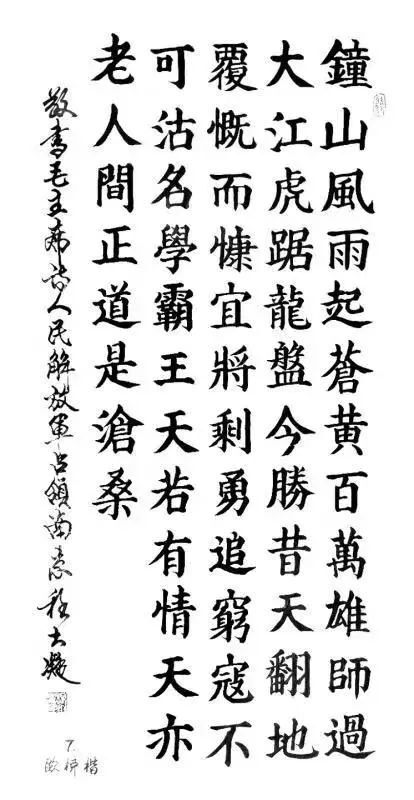 鐘山風雨起蒼黃百萬雄師過
大江虎踞龍盤今勝昔天翻地
覆慨而慷宜將剩勇追窮寇不
可沽名學霸王天若有情天亦
老人間正道是滄桑
敬書毛主席詩人民解放軍占領南京程
7.
楷